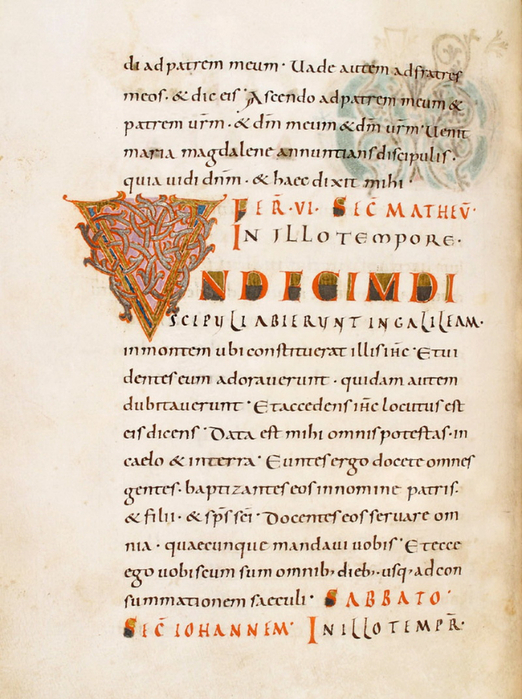 di ad patrem meum · Uade autem ad fratres
meos · & dic eis · Ascendo ad patrem meum &
patrem ur̄m · & dm̄ meum & dm̄ ur̄m · Uenit
maria magdalene annuntians discipulis ·
quia uidi dn̄m · & haec dixit mihi ·
FER̄ · VI · SEC̄ MATHEV̄ ·
IN ILLO TEMPORE ·
VNDECIM DI
SCIPULI ABIERUNT IN GALILEAM ·
in montem ubi constituerat illis ih̄c · Et ui
dentes eum adorauerunt · quidam autem
dubitauerunt · Et accedens ih̄c locutus est
eis dicens · Data est mihi omnis potestas · in
caelo & in terra · Euntes ergo docete omnes
gentes · baptizantes eos in nomine patris ·
& filii · & sp̄s sc̄i · Docentes eos seruare om
nia · quaecunque mandaui uobis · Et ecce
ego uobiscum sum omnib; dieb; · usq; ad con
summationem saeculi · SABBATO ·
SEC̄ IOHANNEM · IN ILLO TEMPR̄ ·